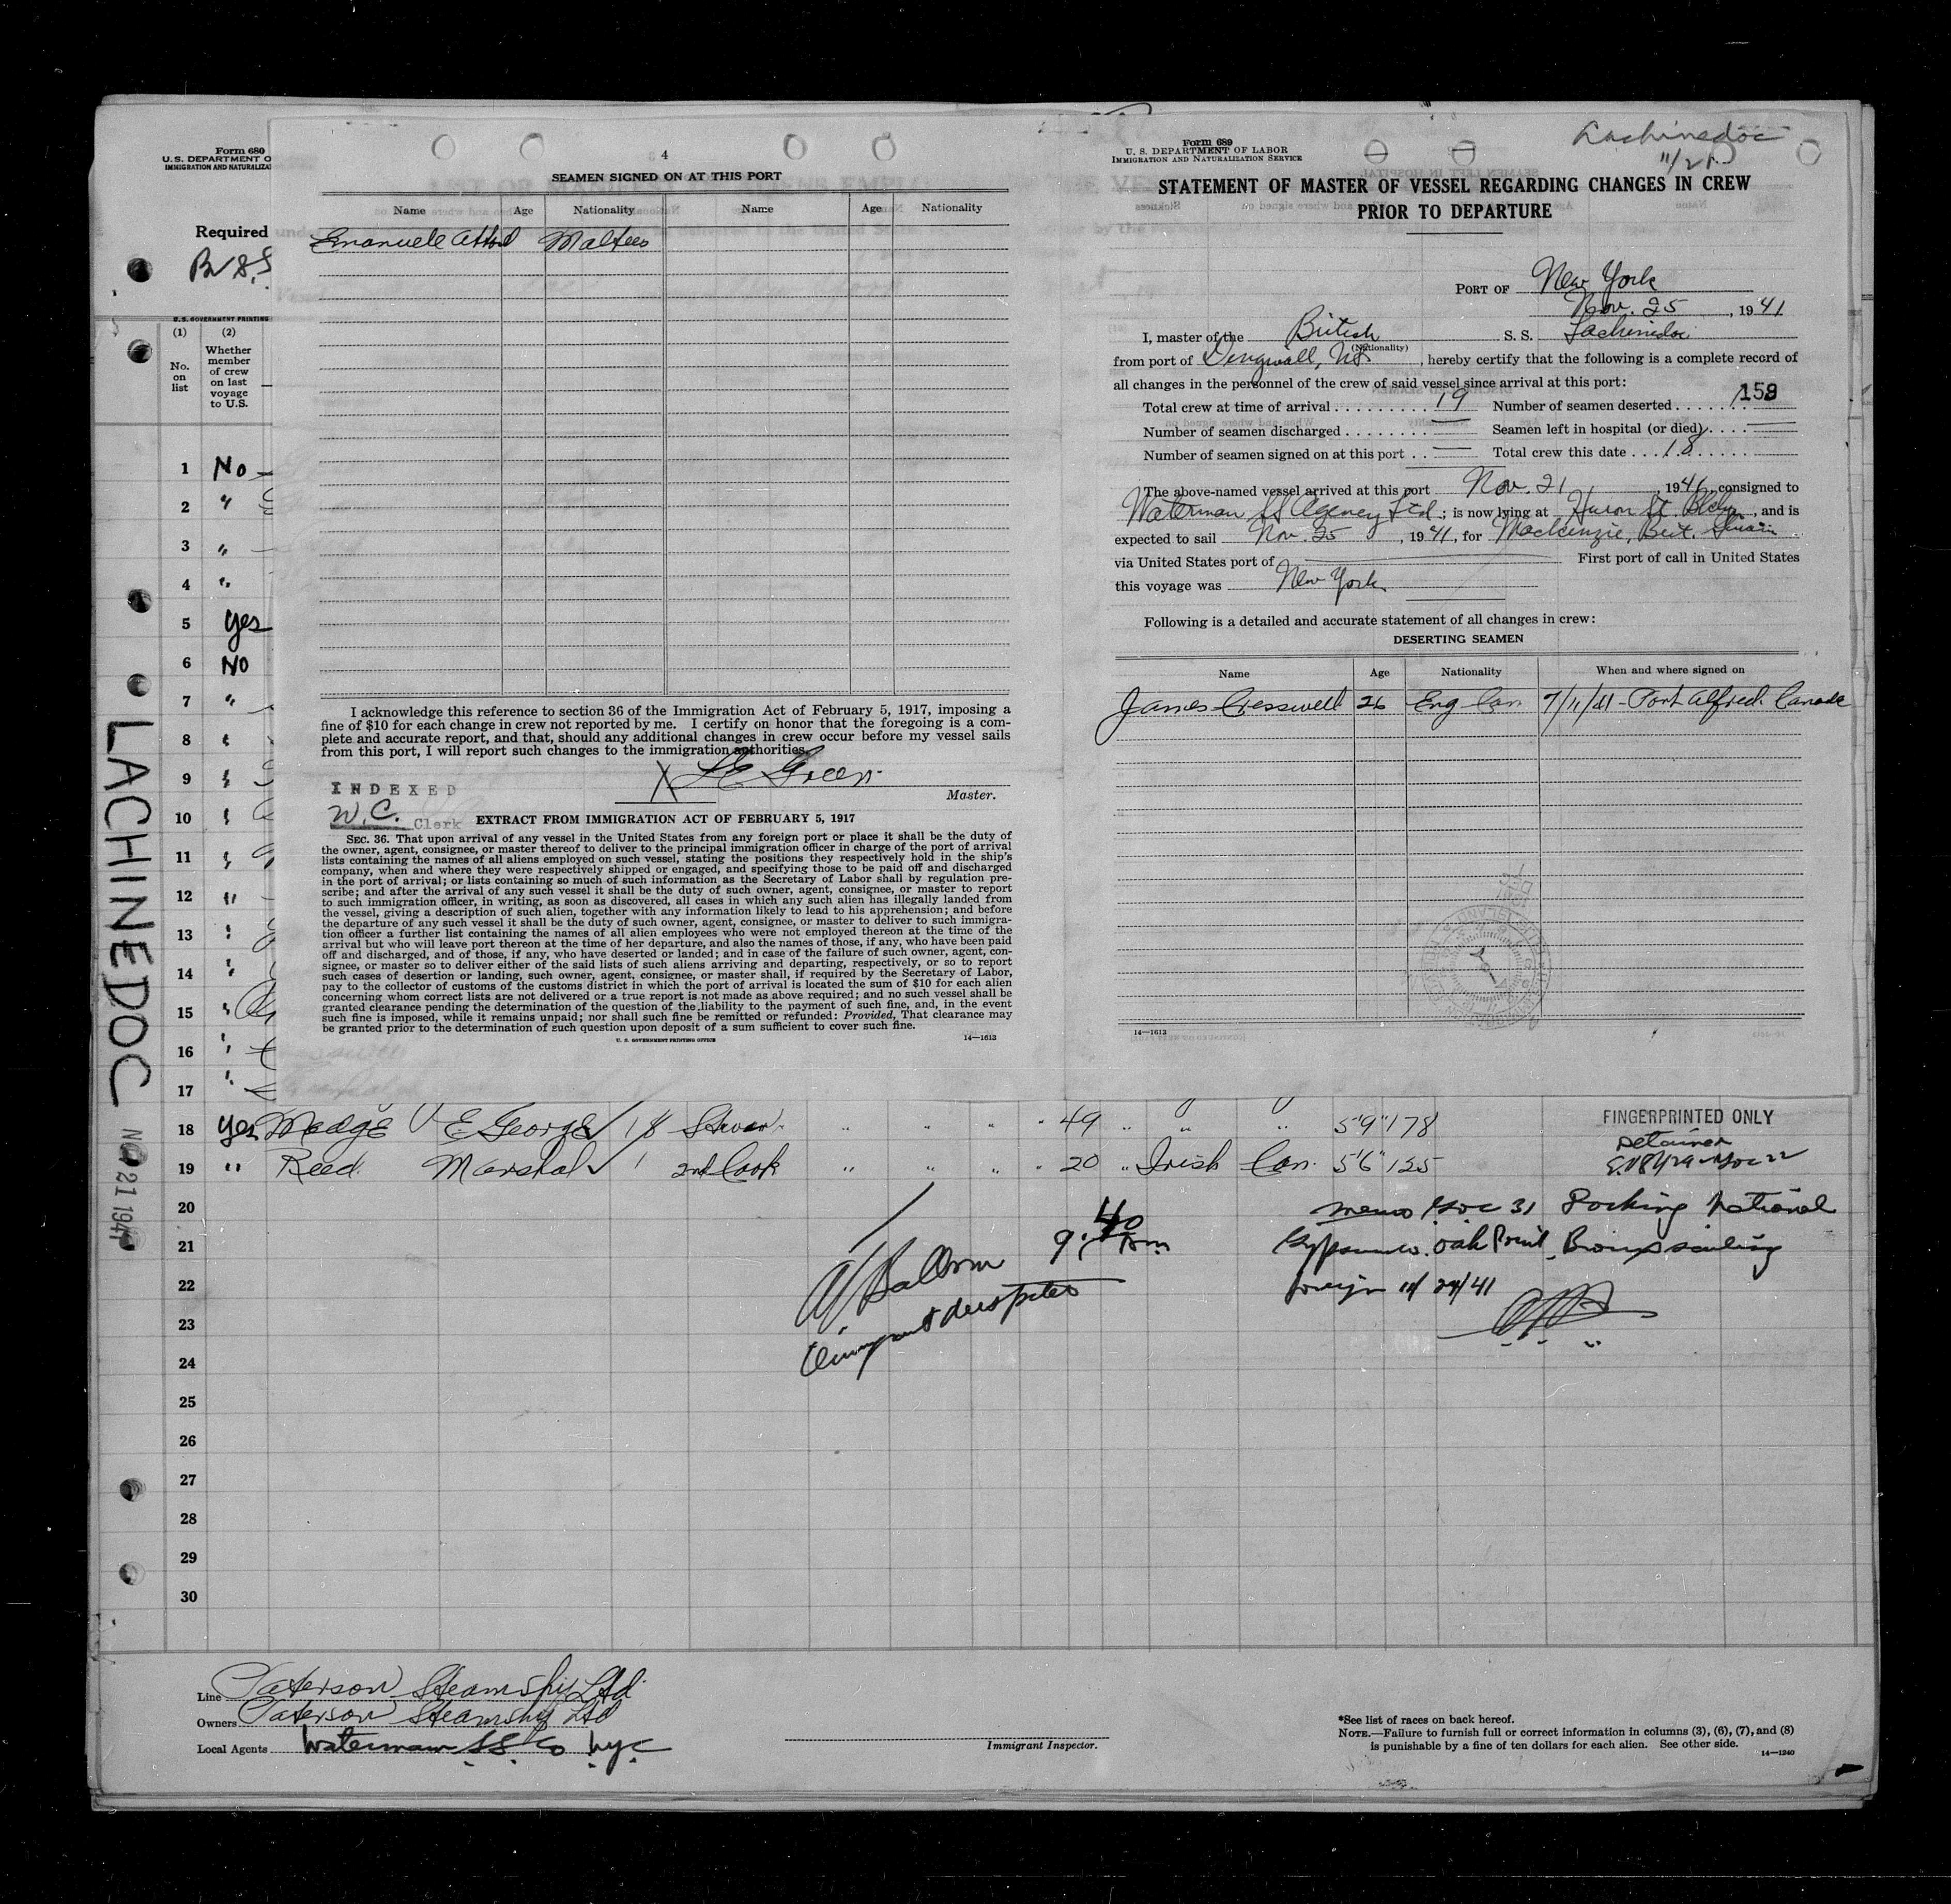 Form 680
U.S. DEPARTMENT O
IMMIGRATION AND NATURALIZA
Required
U.S. GOVERNMENT PRINTING
(1)
(2)
No. on list
Whether member of crew on last voyage to U.S.
LACHINEDOC
NOV 21 1941
4
SEAMEN SIGNED ON AT THIS PORT
Name Age Nationality Name Age Nationality
Emanuele Maltees
I acknowledge this reference to section 36 of the Immigration Act of February 5, 1917, imposing a
fine of $10 for each change in crew not reported by me. I certify on honor that the foregoing is a com-
plete and accurate report, and that, should any additional changes in crew occur before my vessel sails
from this port, I will report such changes to the immigration authorities.
Green
Master.
INDEXED
W.C. Clerk
EXTRACT FROM IMMIGRATION ACT OF FEBRUARY 5, 1917
SEC. 36. That upon arrival of any vessel in the United States from any foreign port or place it shall be the duty of
the owner, agent, consignee, or master thereof to deliver to the principal immigration officer in charge of the port of arrival
lists containing the names of all aliens employed on such vessel, stating the positions they respectively hold in the ship's
company, when and where they were respectively shipped or engaged, and specifying those to be paid off and discharged
in the port of arrival; or lists containing so much of such information as the Secretary of Labor shall by regulation pre-
scribe; and after the arrival of any such vessel it shall be the duty of such owner, agent, consignee, or master to report
to such immigration officer, in writing, as soon as discovered, all cases in which any such alien has illegally landed from
the vessel, giving a description of such alien, together with any information likely to lead to his apprehension; and before
the departure of any such vessel it shall be the duty of such owner, agent, consignee, or master to deliver to such immigra-
tion officer a further list containing the names of all alien employees who were not employed thereon at the time of the
arrival but who will leave port thereon at the time of her departure, and also the names of those, if any, who have been paid
off and discharged, and of those, if any, who have deserted or landed; and in case of the failure of such owner, agent, con-
signee, or master so to deliver either of the said lists of such aliens arriving and departing, respectively, or so to report
such cases of desertion or landing, such owner, agent, consignee, or master shall, if required by the Secretary of Labor,
pay to the collector of customs of the customs district in which the port of arrival is located the sum of $10 for each alien
concerning whom correct lists are not delivered or a true report is not made as above required; and no such vessel shall be
granted clearance pending the determination of the question of the liability to the payment of such fine, and, in the event
such fine is imposed, while it remains unpaid; nor shall such fine be remitted or refunded: Provided, That clearance may
be granted prior to the determination of such question upon deposit of a sum sufficient to cover such fine.
U. S. GOVERNMENT PRINTING OFFICE 14—1613
Lachinedoc
11/21
Form 689
U. S. DEPARTMENT OF LABOR
IMMIGRATION AND NATURALIZATION SERVICE
STATEMENT OF MASTER OF VESSEL REGARDING CHANGES IN CREW
PRIOR TO DEPARTURE
PORT OF New York
Nov. 25, 1941
I, master of the British S. S. Lachinedoc
(Nationality)
from port of Dingwall, NS., hereby certify that the following is a complete record of
all changes in the personnel of the crew of said vessel since arrival at this port:
Total crew at time of arrival 19 Number of seamen deserted
Number of seamen discharged — Seamen left in hospital (or died) —
Number of seamen signed on at this port — Total crew this date 18
The above-named vessel arrived at this port Nov. 21, 1941, consigned to
Waterman SS Agency Ltd.; is now lying at Huron St. Bklyn, and is
expected to sail Nov. 25, 1941, for Mackenzie, Brit.
via United States port of — First port of call in United States
this voyage was New York
Following is a detailed and accurate statement of all changes in crew:
DESERTING SEAMEN
Name Age Nationality When and where signed on
James Cresswell 26 Eng Can 7/11/41 - Port Alfred. Canada
14—1613
1 No
2 "
3 "
4 "
5 Yes
6 NO
7 "
8 "
9 "
10 "
11 "
12 "
13 "
14 "
15 "
16 "
17 "
18 yes Madge E George 18 " " " " 49 " " " 5'9" 178 FINGERPRINTED ONLY
Detainer
19 " Reed Marshal 1 2nd Cook " " " " 20 " Irish Can. 5'6" 125
20 memo 31 Docking National
21 9:40 Gypsum Co. Oak Point, Bronx sailing
22 foreign 11/24/41
23
24
25
26
27
28
29
30
Line Paterson Steamship Ltd
Owners Paterson Steamship Ltd
Local Agents Waterman SS Co NYC
Immigrant Inspector.
*See list of races on back hereof.
NOTE.—Failure to furnish full or correct information in columns (3), (6), (7), and (8)
is punishable by a fine of ten dollars for each alien. See other side.
14—1240